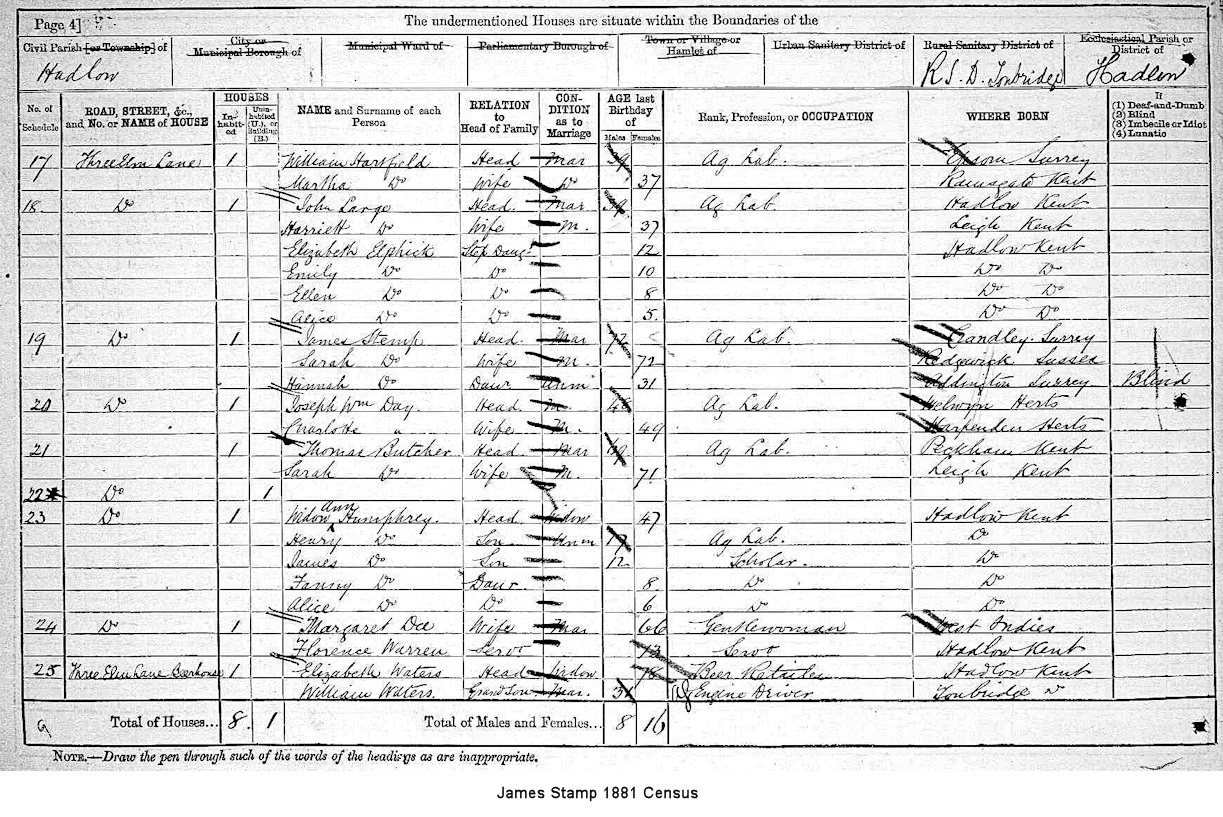 Page 4]
The undermentioned Houses are situate within the Boundaries of the
Civil Parish [or Township] of
City or Municipal Borough of
Municipal Ward of
Parliamentary Borough of
Town or Village or Hamlet of
Urban Sanitary District of
Rural Sanitary District of
Ecclesiastical Parish or District of
Hadlow
R. S. D. Tonbridge
Hadlow
No. of Schedule
ROAD, STREET, &c., and No. or NAME of HOUSE
HOUSES
In-habit-ed
Unin-habited (U.), or Building (B.)
NAME and Surname of each Person
RELATION to Head of Family
CON-DITION as to Marriage
AGE last Birthday of
Males
Females
Rank, Profession, or OCCUPATION
WHERE BORN
If
(1) Deaf-and-Dumb
(2) Blind
(3) Imbecile or Idiot
(4) Lunatic
17 Three Elm Lane 1 William Hartfield Head Mar Ag Lab. Epsom Surrey
Martha Do Wife Do 37 Ramsgate Kent
18. Do 1 John Large Head. Mar Ag Lab. Hadlow Kent
Harriett Do Wife M. 37 Leigh Kent
Elizabeth Elphick Step Daur 12 Hadlow Kent
Emily Do Do 10 Do Do
Ellen Do Do 8 Do Do
Alice Do Do 5. Do Do
19 Do 1 James Stemp Head. Mar 72 Ag Lab. Crandley. Surrey
Sarah Do Wife M. 72 Redgwick Sussex
Hannah Do Daur Unm 31 Addington Surrey Blind
20 Do 1 Joseph Wm Day. Head. M. 48 Ag Lab. Welwyn Herts
Charlotte " Wife M. 49 Harpenden Herts
21 1 Thomas Butcher Head Mar Ag Lab. Peckham Kent
Sarah Do Wife M. 71 Leigh Kent
22 Do 1
23 Do 1 Widow Ann Humphrey. Head Widow 47 Hadlow Kent
Henry Do Son Unm Ag Lab. Do
James Do Son 12 Scholar. Do
Fanny Do Daur 8 Do Do
Alice Do Do 6 Do Do
24 Do 1 Margaret Dee Wife Mar 66 Gentlewoman West Indies
Florence Warren Servt 13 Servt Hadlow Kent
25 Three Elm Lane Beerhouse 1 Elizabeth Waters Head Widow 78 Beer Retailer Hadlow Kent
William Waters. Grand Son Mar. Engine Driver Tonbridge Do
Total of Houses... 8. 1 Total of Males and Females... 8 16
NOTE.—Draw the pen through such of the words of the headings as are inappropriate.
James Stamp 1881 Census